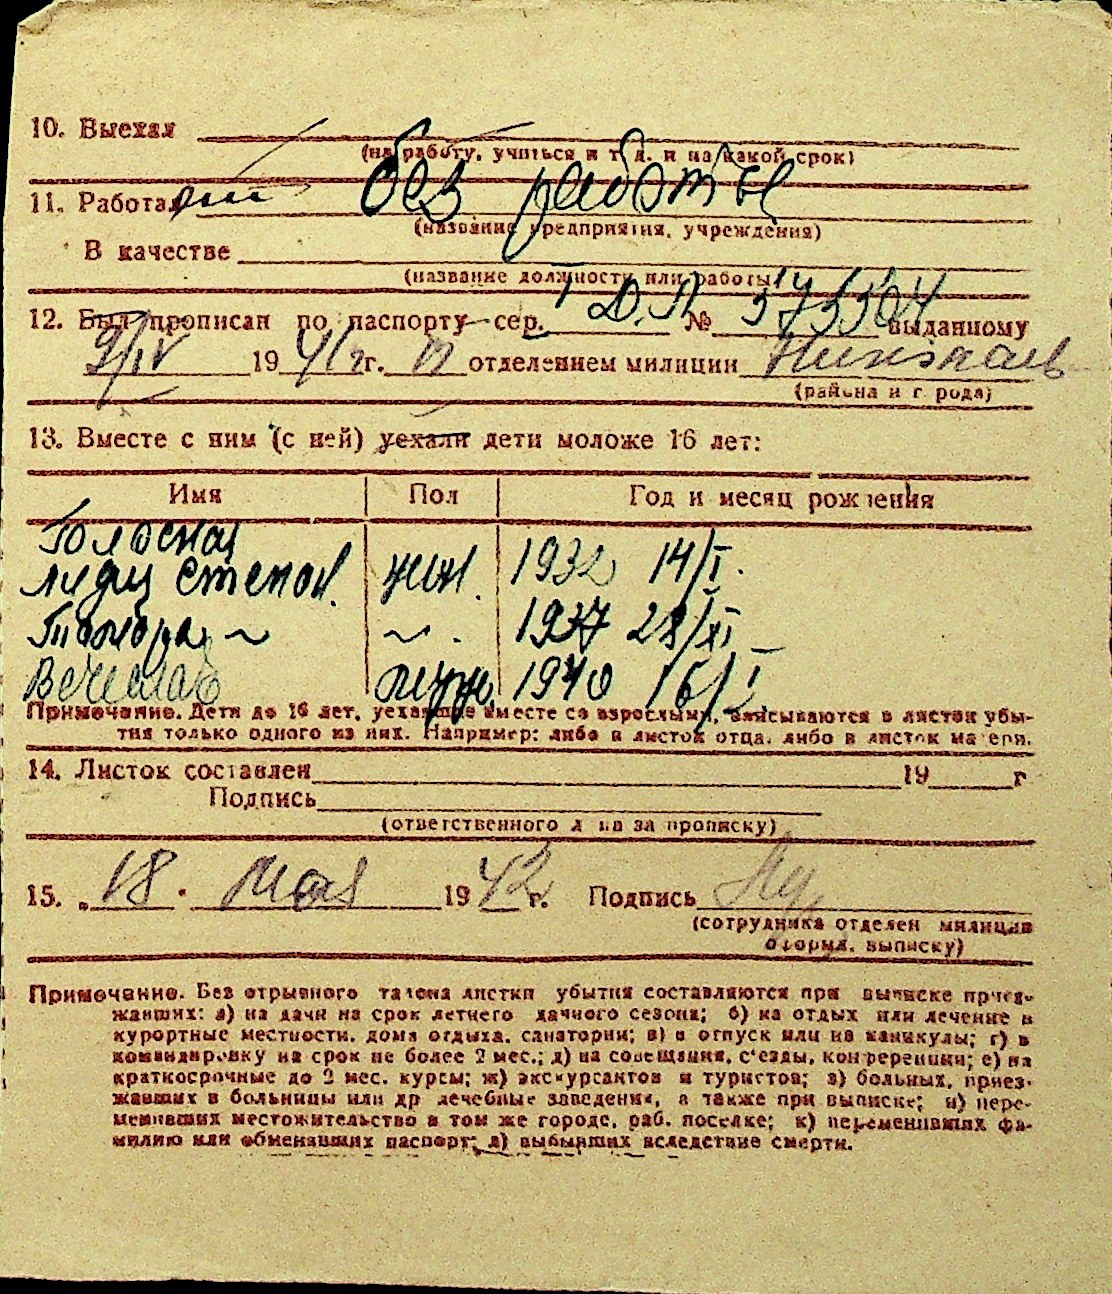 10. Выехал
(на работу, учиться и т д. и на какой срок)
11. Работал без работы
(название предприятия, учреждения)
В качестве
(название должности или работы)
12. Был прописан по паспорту сер. I Д.П. № 575504 выданному
9/IV 19 41 г. отделением милиции Николаев
(района и г рода)
13. Вместе с ним (с ней) уехали дети моложе 16 лет:
Имя Пол Год и месяц рождения
Лидия Степан. жен. 1932 14/I.
Тамара ~ ~. 1937 28/XI
Вечеслав муж. 1940 16/I
Примечание. Дети до 16 лет, уехавшие вместе со взрослыми, записываются в листок убы-
тия только одного из них. Например: либо в листок отца, либо в листок матери.
14. Листок составлен 19 г
Подпись
(ответственного л ца за прописку)
15. 18. мая 19 42 г. Подпись
(сотрудника отделен милиции
оформл. выписку)
Примечание. Без отрывного талона листки убытия составляются при выписке приез-
жавших: а) на дачи на срок летнего дачного сезона; б) на отдых или лечение в
курортные местности, дома отдыха, санатории; в) в отпуск или на каникулы; г) в
командировку на срок не более 2 мес.; д) на совещания, с'езды, конференции; е) на
краткосрочные до 2 мес. курсы; ж) экскурсантов и туристов; з) больных, приез-
жавших в больницы или др лечебные заведения, а также при выписке; и) пере-
менивших местожительство в том же городе, раб. поселке; к) переменивших фа-
милию или обменявших паспорт; л) выбывших вследствие смерти.